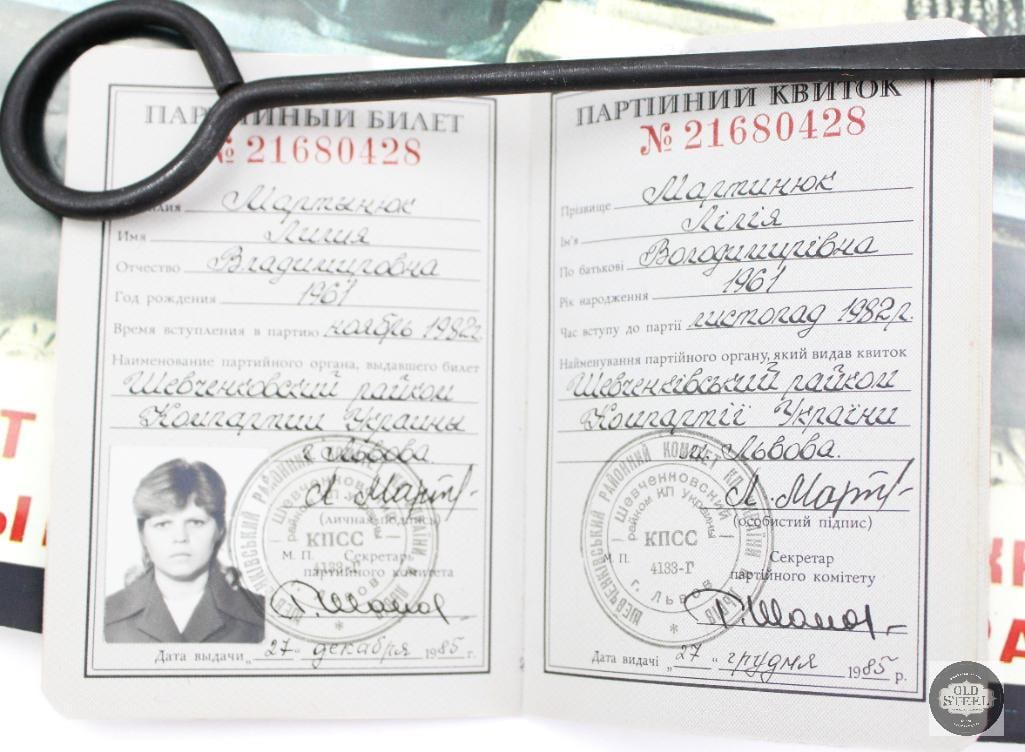 ПАРТИЙНЫЙ БИЛЕТ
№ 21680428
Мартынюк
Имя Лилия
Отчество Владимировна
Год рождения 1961
Время вступления в партию ноябрь 1982г.
Наименование партийного органа, выдавшего билет
Шевченковский райком
Компартии Украины
г. Львова
Л. Март
(личная подпись)
М. П. Секретарь
партийного комитета
Дата выдачи „27" декабря 1985 г.
ПАРТІЙНИЙ КВИТОК
№ 21680428
Прізвище Мартинюк
Ім'я Лілія
По батькові Володимирівна
Рік народження 1961
Час вступу до партії листопад 1982р.
Найменування партійного органу, який видав квиток
Шевченківський райком
Компартії України
м. Львова.
Л. Март
(особистий підпис)
М. П. Секретар
партійного комітету
Дата видачі „27" грудня 1985 р.
Шевченковский
райком КП Украины
КПСС
4133-Г
г. Львов
OLD
STEEL